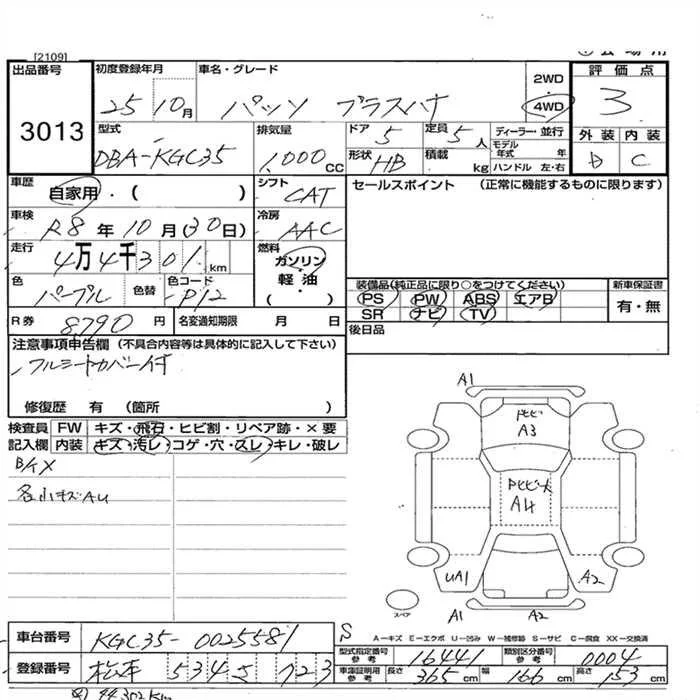 [2109]
出品番号 3013
初度登録年月 25 10月
車名・グレード パッソ プラスハナ
2WD 4WD
評価点 3
外装 D 内装 C
型式 DBA-KGC35
排気量 1,000 CC
ドア 5 定員 5人
ディーラー・並行
形状 HB 積載 kg
モデル年式 年
ハンドル 左・右
車歴 自家用・( )
シフト CAT
セールスポイント (正常に機能するものに限ります)
車検 R8年10月(30日)
冷房 AAC
走行 4万4千301 km
燃料 ガソリン 軽油 ( ・ )
色 パープル 色替 色コード P12
装備品(純正品に限り○をつけてください)
PS PW ABS エアB
SR ナビ TV
新車保証書 有・無
R券 8,790円
名変通知期限 月 日
後日品
注意事項申告欄 (不具合内容等は具体的に記入して下さい)
フルシートカバー付
修復歴 有 (箇所 )
検査員記入欄
FW キズ・飛石・ヒビ割・リペア跡・×要
内装 キズ・汚レ・コゲ・穴・スレ・キレ・破レ
各小キズAU
A1
A3
A4
UA1
A2
スペア
A1
A2
A-キズ E-エクボ U-凹み W-補修跡 S-サビ C-腐食 XX-交換済
車台番号 KGC35-0025581
S
登録番号 松本 534 S 723
型式指定番号 参考 16441
類別区分番号 参考 0004
車庫証明用 参考 長さ 365cm 幅 166cm 高さ 153cm